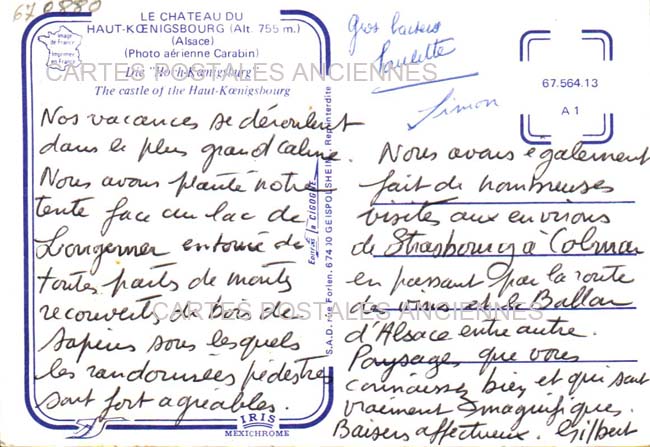 67 0880
LE CHATEAU DU
HAUT-KŒNIGSBOURG (Alt. 755 m.)
(Alsace)
(Photo aérienne Carabin)
Die "Hoch-Kœnigsburg"
The castle of the Haut-Kœnigsbourg
Image de France
Imprimé en France
CARTES POSTALES ANCIENNES
Nos vacances se déroulent
dans le plus grand calme.
Nous avons planté notre
tente face au lac de
Longemer entouré de
toutes parts de monts
recouverts de bois de
sapins sous lesquels
les randonnées pédestres
sont fort agréables.
IRIS
MEXICHROME
Editions la CIGOGNE
S.A.D. rue Forlen. 67410 GEISPOLSHEIM - Reprointerdite
Gros baisers
Paulette
Simon
67.564.13
A 1
Nous avons également
fait de nombreuses
visites aux environs
de Strasbourg à Colmar
en passant par la route
de vins et le Ballon
d'Alsace entre autre.
Paysages que vous
connaissez bien et qui sont
vraiment magnifiques.
Baisers affectueux. Gilbert
CARTES POSTALES ANCIENNES